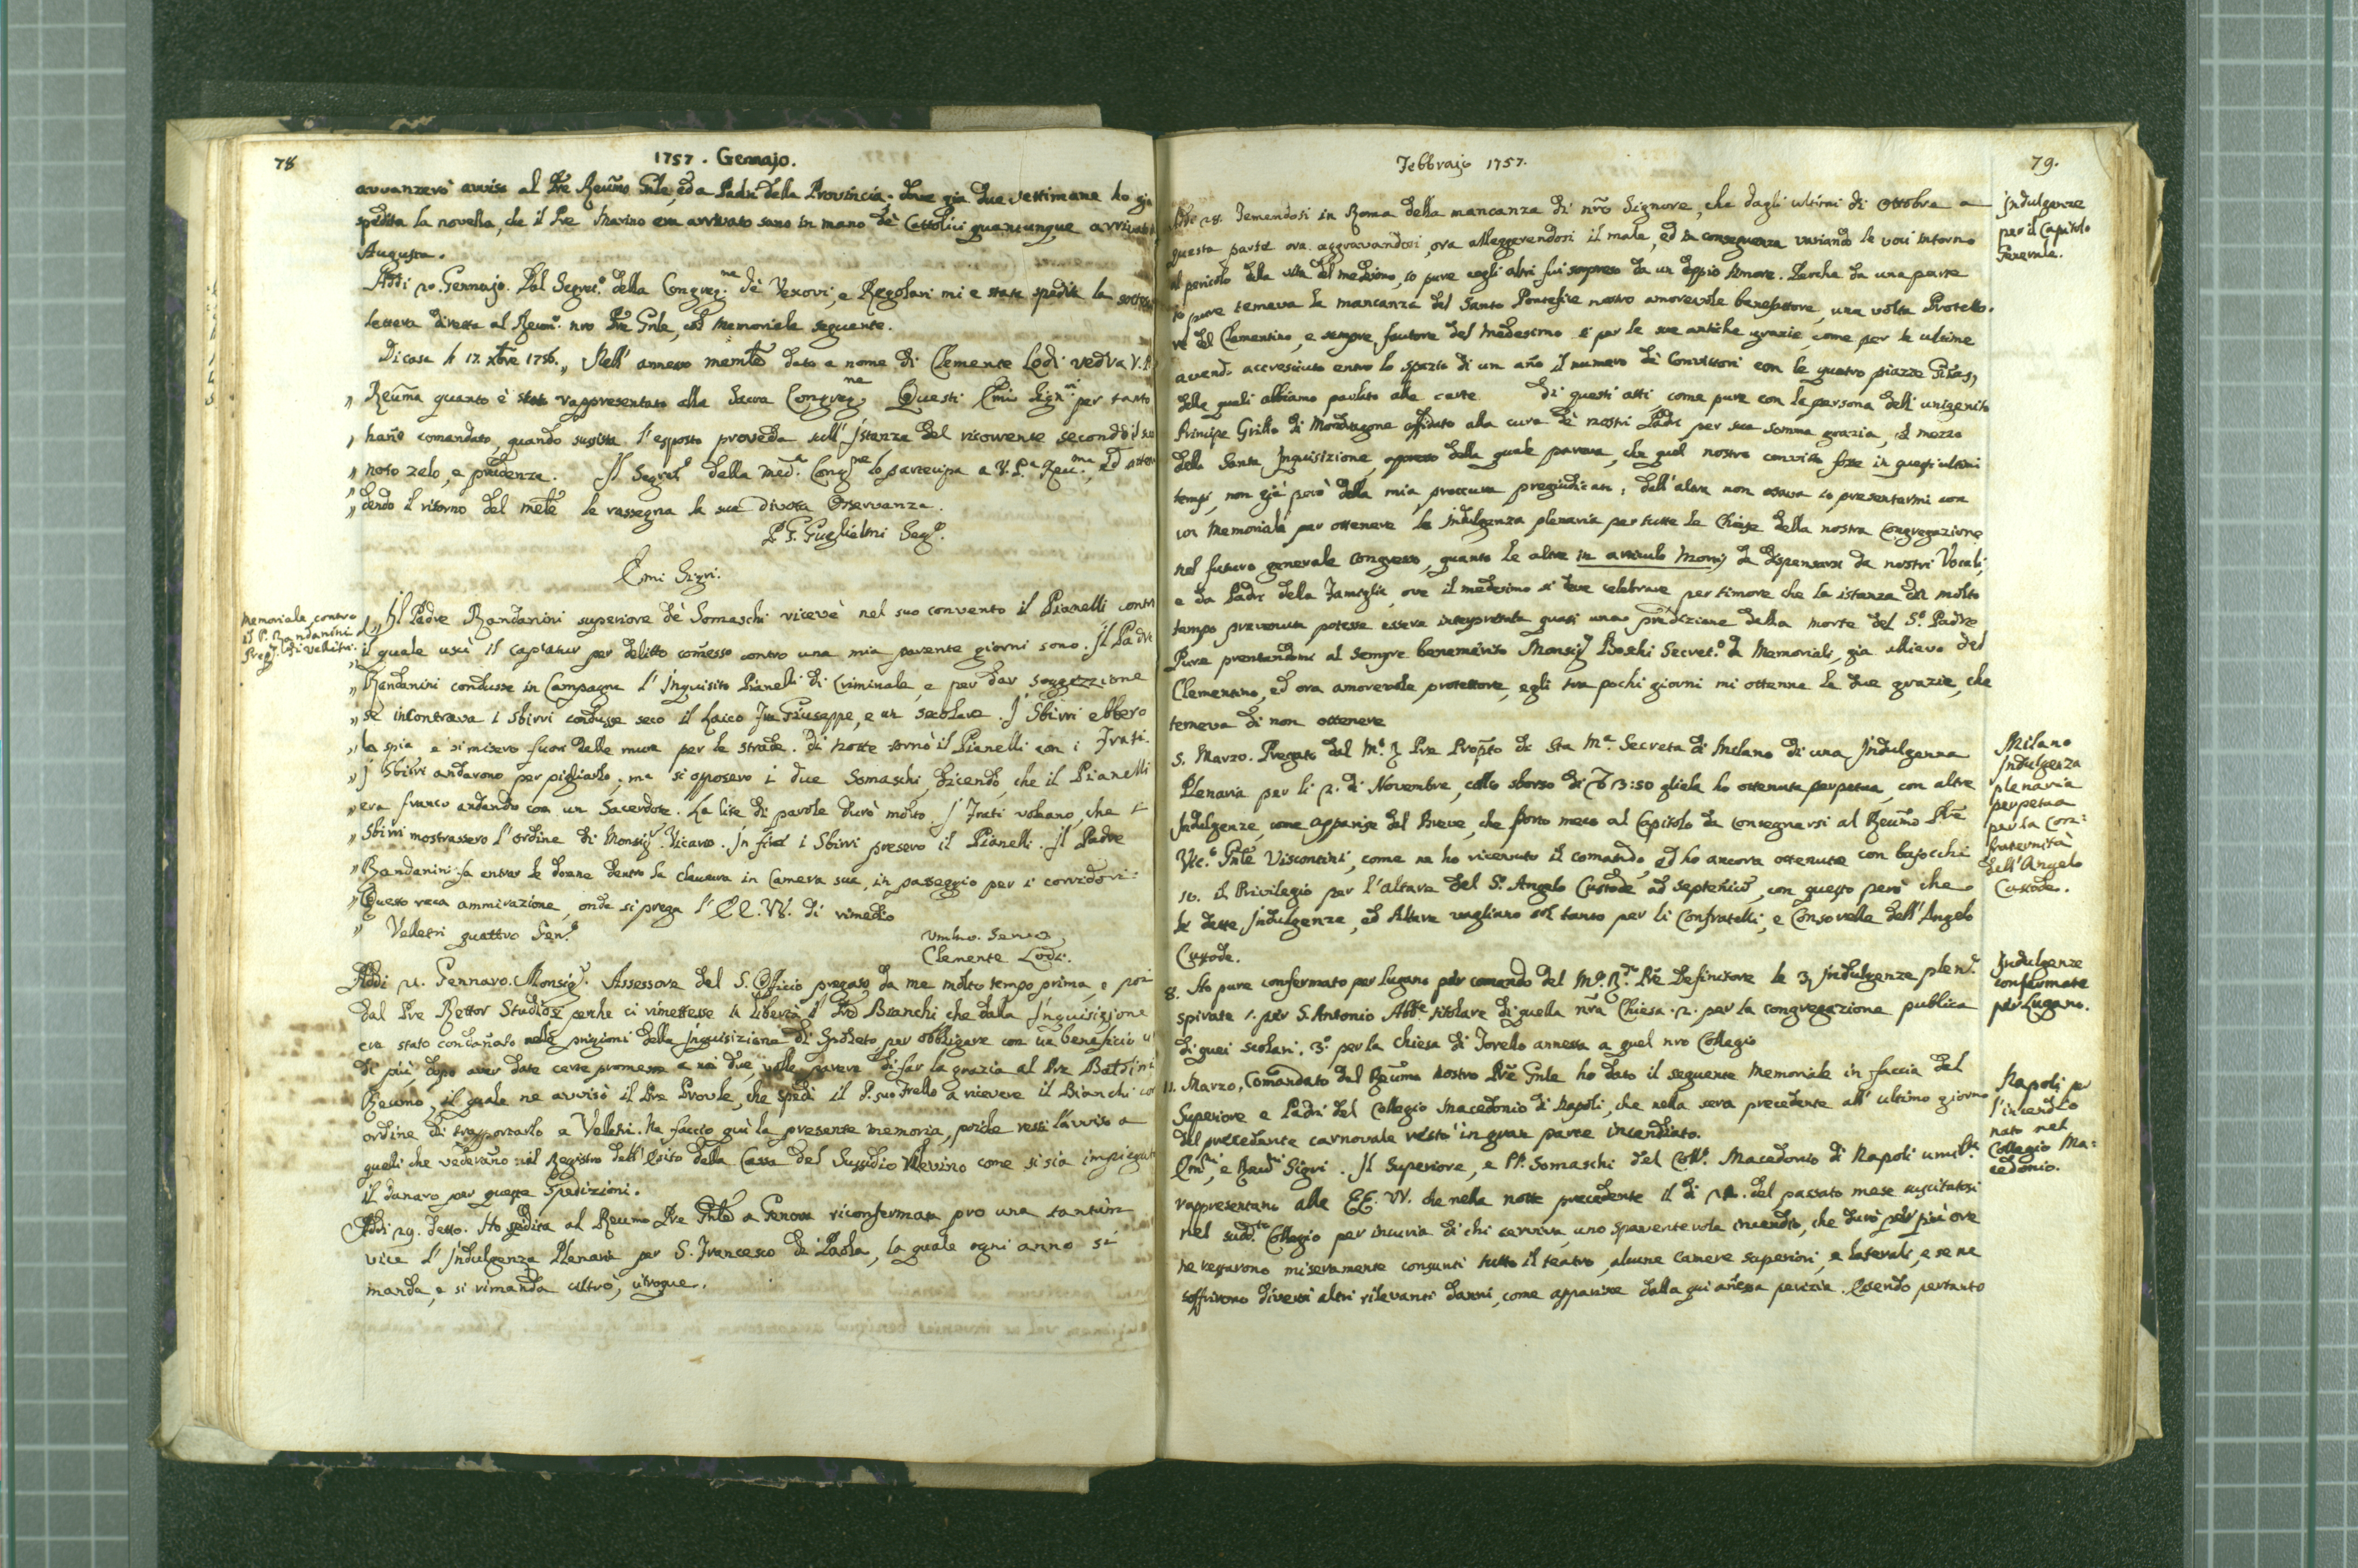 78
1757. Gennajo.
avvanzerò avviso al Pre Reumo Gnle, ed a Padri della Provincia. dove già due settimane ho già
spedita la novella, che il Pre Marino era arrivato sano in mano dè Cattolici quantunque arrivato
Augusta.
Addi 20. Gennajo. Dal Segret.o della Congreg.ne dè Vescovi, e Regolari mi e stata spedita la
lettera diretta al Reumo. nro Pre Gnle, col memoriale seguente.
Di casa li 17. Xbre 1756. „ Nell' annesso memle dato a nome di Clemente Lodi vedrà V. P.
„ Reuma quanto è stato rappresentato alla Sacra Congreg.ne Questi Emi Sign.ri per tanto
„ hano comandato, quando sussista l'esposto proveda sull' Istanza del ricorrente secondo il suo
„ noto zelo, e prudenza. Il Segret.o della med.a Cong.ne lo partecipa a V. P.a Reu.ma, ed atten
„ dendo il ritorno del mele le rassegna la sua divota Osservanza.
P. G. Guglielmi Seg.o.
Emi Sigri.
Memoriale contro
il P. Randanini
Prep. di Velletri.
„ Il Padre Randanini superiore dè Somaschi ricevè nel suo convento il Pianelli contro
il quale uscì il capiatur per delitto comesso contro una mia parente giorni sono. Il Padre
„ Randanini condusse in Campagna l'Inquisito Pianelli di Criminale, e per dar soggezzione
„ se incontrava i sbirri condusse seco il Laico Fra Giuseppe, e un secolare. I Sbirri ebbero
„ la spia e si misero fuori dalle mura per le strade. di notte tornò il Pianelli con i Frati.
„ I Sbirri andarono per pigliarlo, ma si opposero i due Somaschi, dicendo, che il Pianelli
„ era franco andando con un Sacerdote. La lite di parole durò molto. I Frati volevano, che i
„ Sbirri mostrassero l'ordine di Monsig.r Vicario. In fine i Sbirri presero il Pianelli. Il Padre
„ Randanini fa entrar le donne dentro la clausura in Camera sua, in passeggio per i corridori:
„ Questo reca ammirazione, onde si prega l'EE. VV. di rimedio
„ Velletri quattro Gen.o
Umlmo. Servo
Clemente Lodi.
Addi 21. Gennaro. Monsig.r Assessore del S. Officio pregato da me molto tempo prima, e poi
dal Pre Rettor Studiosi perche ci rimettesse in libertà il Pre Bianchi che dalla Inquisizione
era stato condanato nelle prigioni della Inquisizione di Spoleto, per obbligare con un beneficio
di più, dopo aver date certe promesse a noi due, volle far la grazia al Pre Baldini
Reumo, il quale ne avvisò il Pre Provle, che spedì il P. suo Frello a ricevere il Bianchi con
ordine di trasportarlo a Veletri. Ne faccio quì la presente memoria, perche resti l'avviso a
quelli che vederano nel Registro dell' Esito della Cassa del Sussidio come si sia impiegato
il danaro per queste Spedizioni.
Addi 29. detto. Ho spedita al Reumo Pre Gnle a Genova riconfermata pro una tantùm
vice l'Indulgenza Plenaria per S. Francesco di Paola, la quale ogni anno si
manda, e si rimanda ultrò, citroque.
Febbrajo 1757.
79.
Indulgenze
per il Capitolo
Generale.
28. Temendosi in Roma della mancanza di nrõ Signore, che dagli ultimi di Ottobre a
questa parte ora aggravandosi, ora alleggerendosi il male, ed in conseguenza variando le voci intorno
al pericolo della vita del medesimo, io pure cogli altri fui sorpreso da un doppio timore. Perche da una parte
io pure temeva la mancanza del Santo Pontefice nostro amorevole benefattore, una volta Protetto.
re del Clementino, e sempre fautore del medesimo e per le sue antiche grazie, come per le ultime
avend. accresciuto entro lo spazio di un año il numero di Convittori con le quatro piazze
delle quali abbiamo parlato alle carte di questi atti, come pure con la persona dell' unigenito
Principe Grillo di Mondragone affidato alla cura dè nostri Padri per sua somma grazia, e mezzo
della Santa Inquisizione, appresso della quale pareva, che quel nostro convitto fosse in questi ultimi
tempi, non già però della mia proccura pregiudicato: dall' altra non osava io presentarmi con
un Memoriale per ottenere le Indulgenza plenaria per tutte le Chiese della nostra Congregazione
nel futuro generale congresso, quanto le altre in articulo mortis da dispensarsi da nostri Vocali,
e da Padri della Famiglia, ove il medesimo si deve celebrare per timore che la istanza di molto
tempo prevenuta potesse essere interpretata quasi una predizione della morte del S.o Padre
Pure presentandomi al sempre benemerito Monsig.r Boschi Secret.o di Memoriali, già allievo del
Clementino, ed ora amorevole protettore, egli tra pochi giorni mi ottenne le due grazie, che
temeva di non ottenere
5. Marzo. Pregato dal M.o R Pre Propto di Sta Ma. Secreta di Milano di una Indulgenza
Plenaria per li 2. di Novembre, collo sborso di 3:50 gliela ho ottenuta perpetua, con altre
Indulgenze, come apparisce dal Breve, che porto meco al Capitolo da consegnarsi al Reumo Pre
Vic.o Gnle Viscontini, come ne ho ricevuto il comando, ed ho ancora ottenuto con bajocchi
10. il Privilegio per l'altare del S.o Angelo Custode ad septenium, con questo però che
le dette Indulgenze, ed Altare vagliano sol tanto per li Confratelli, e Consorelle dell' Angelo
Custode.
Milano
Indulgenza
plenaria
perpetua
per la Con:
fraternità
dell' Angelo
Custode.
8. Ho pure confermato per Lugano per comando del M.o R.do Pre Definitore le 3 Indulgenze plen.e
spirate 1. per S. Antonio Abbe titolare di quella nra Chiesa. 2. per la congregazione publica
di quei scolari. 3.o per la chiesa di Torello annessa a quel nro Collegio
Indulgenze
confermate
per Lugano.
11. Marzo. Comandato dal Reumo nostro Pre Gnle ho dato il seguente memoriale in faccia del
Superiore e Padri del Collegio Macedonio di Napoli, che nella sera precedente all' ultimo giorno
del precedente carnovale restò in gran parte incendiato.
Emi, e Reudi Sigri. Il Superiore, e PP. Somaschi del Coll.o Macedonio di Napoli umilte
rappresentano alle EE. VV. che nella notte precedente il di 22. del passato mese suscitatosi
nel sudd.to Collegio per incuria di chi serviva, uno spaventevole incendio, che durò per più ore
ne restarono miseramente consunti tutto il teatro, alcune camere superiori, e laterali, e se ne
soffrirono diversi altri rilevanti danni, come apparisce dalla qui añessa perizia. Essendo pertanto
Napoli p
l'incendio
nato nel
Collegio Ma:
cedonio.